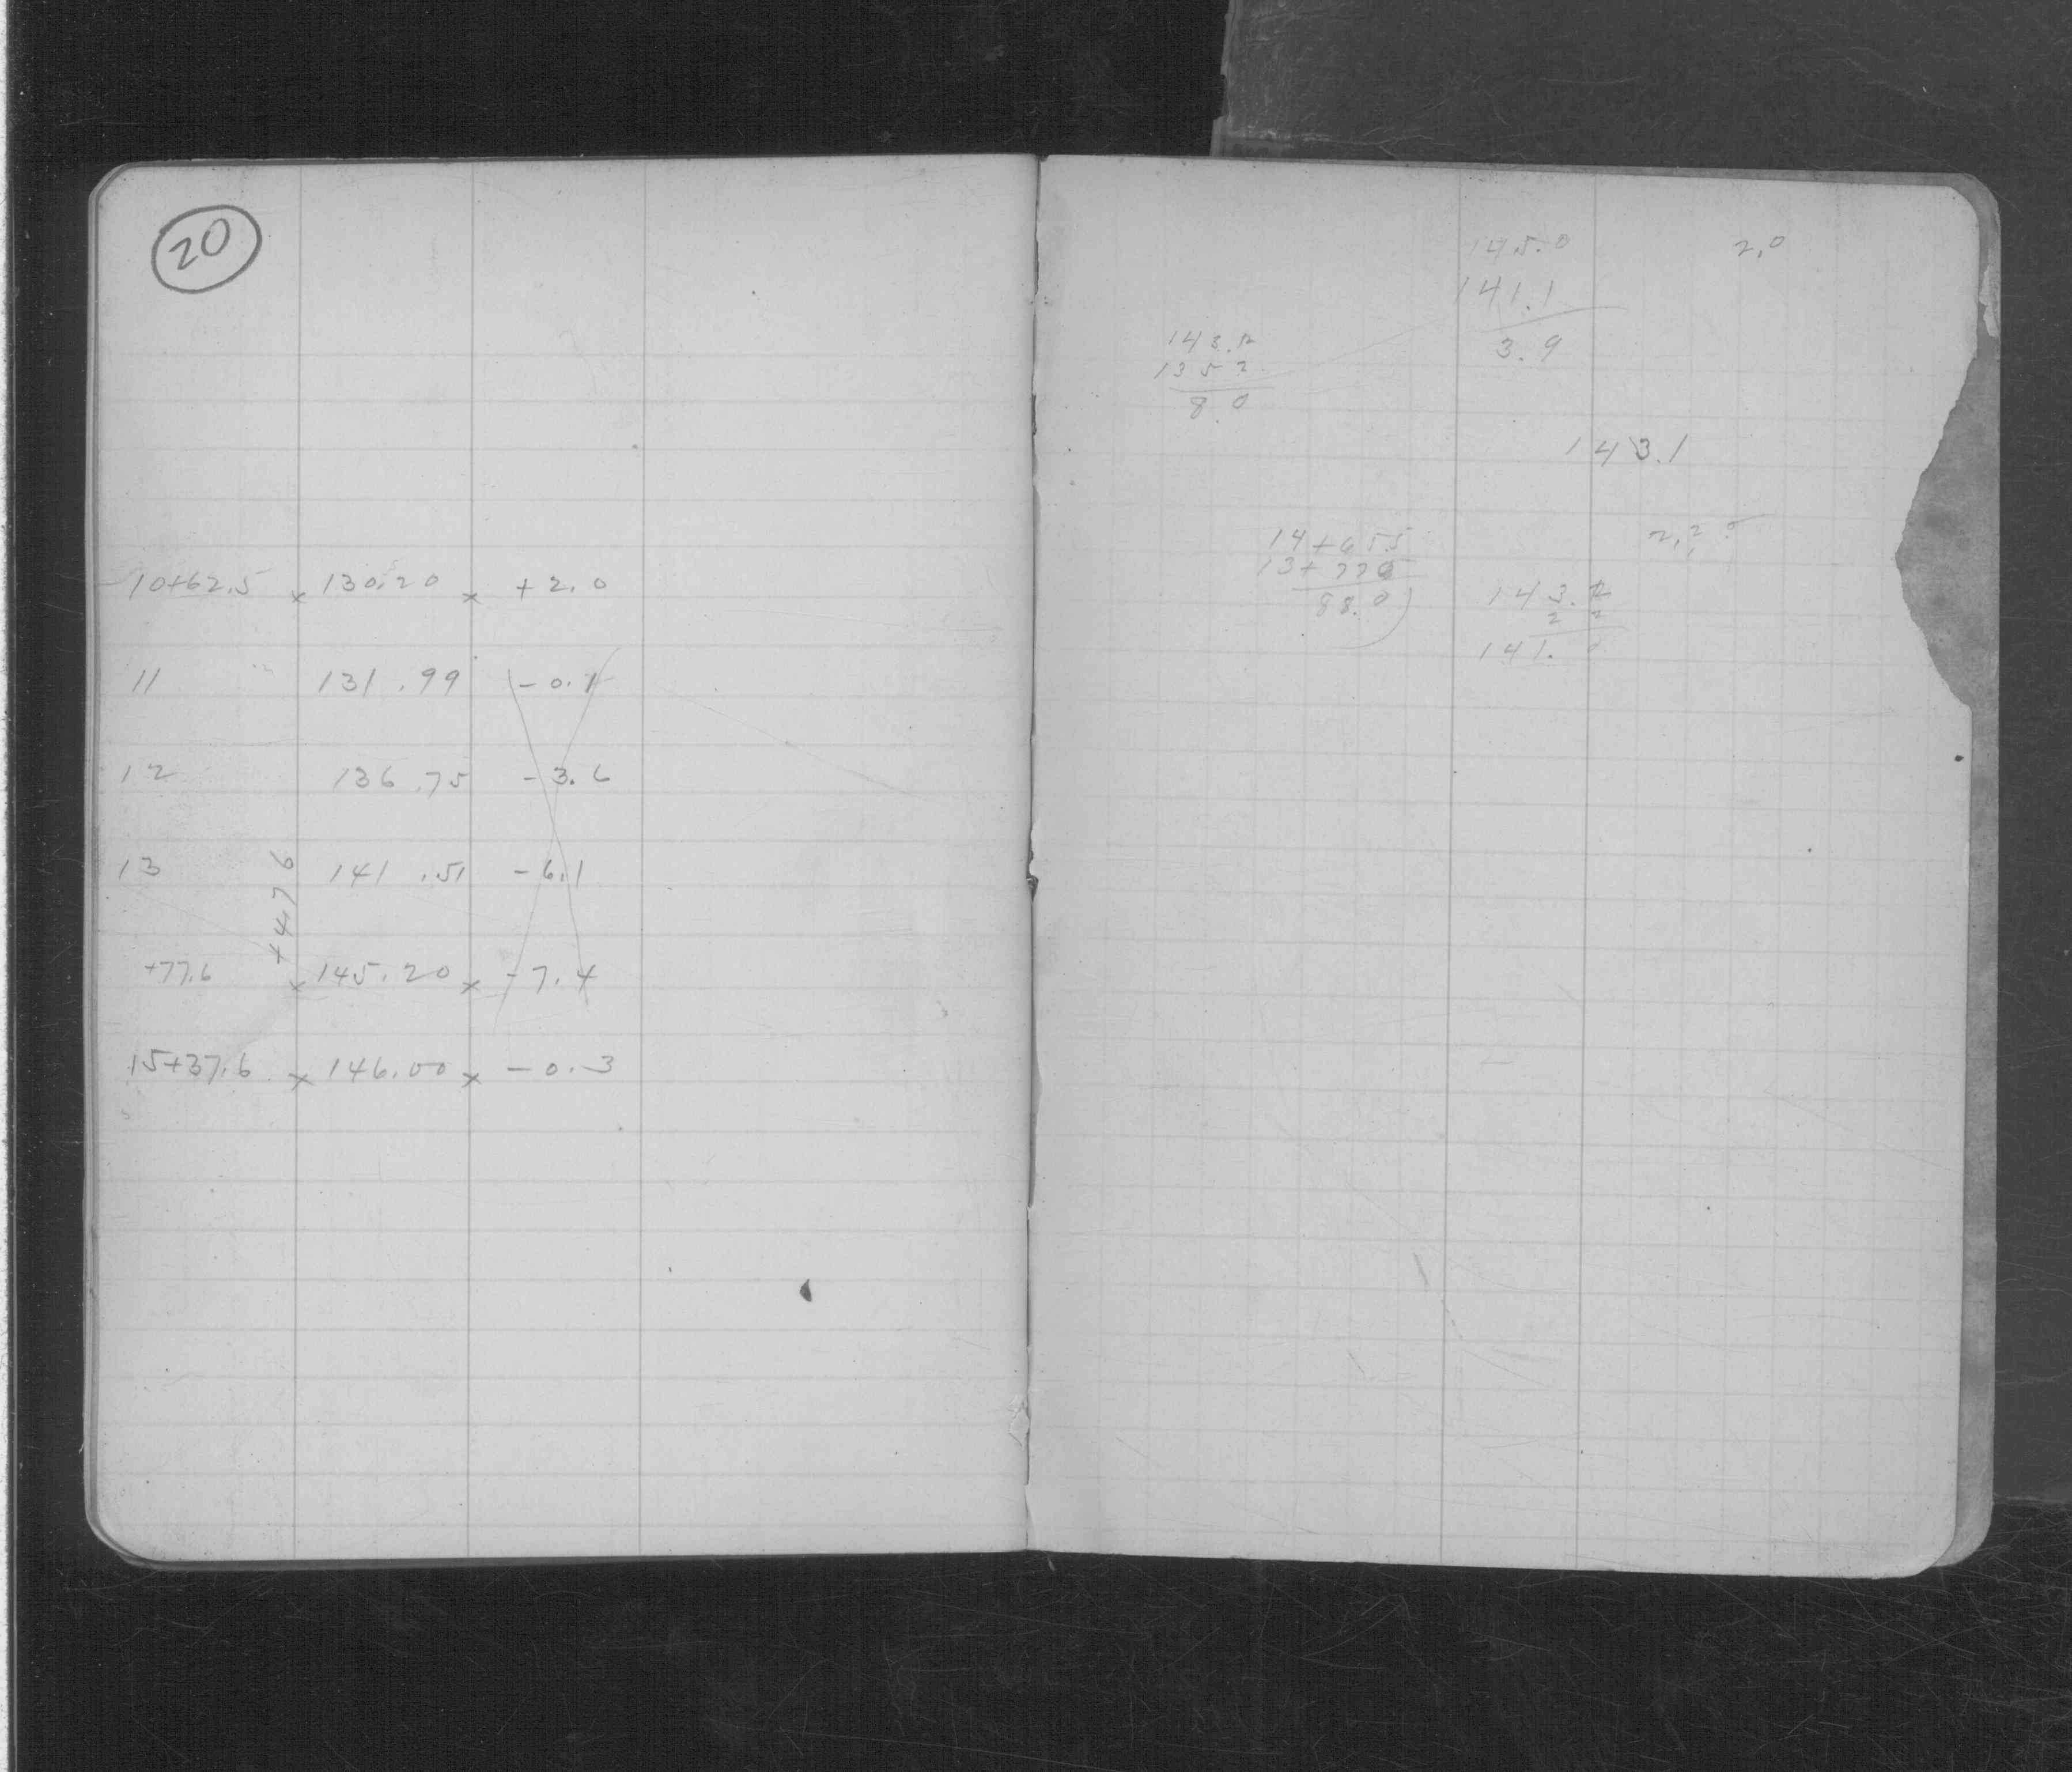 20
10+62.5 x 130.20 x +2.0
11 131.99 -0.1
12 136.75 -3.6
13 141.51 -6.1
+4.76
+77.6 x 145.20 x -7.4
15+37.6 x 146.00 x -0.3
145.0 2.0
141.1
3.9
143.2
135 2
8 0
143.1
14+655
13+77
88.0
143.2
2 2
141. 0